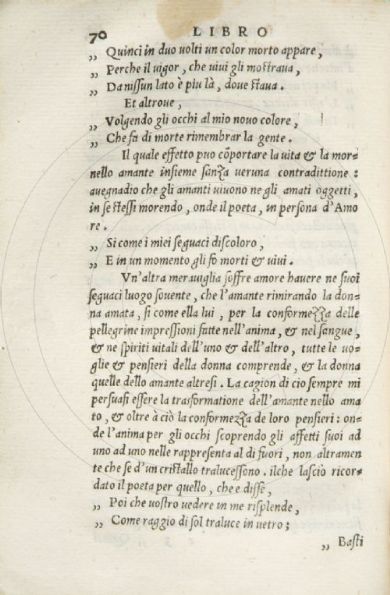 70 LIBRO
„ Quinci in duo uolti un color morto appare,
„ Perche il uigor, che uiui gli moſtraua,
„ Da niſſun lato è piu là, doue ſtaua.
Et altroue,
„ Volgendo gli occhi al mio nouo colore,
„ Che fa di morte rimembrar la gente.
Il quale effetto puo cõportare la uita & la mor-
nello amante inſieme ſanza ueruna contradittione:
auegnadio che gli amanti uiuono ne gli amati oggetti,
in ſe ſteſſi morendo, onde il poeta, in perſona d'Amo
re.
„ Si come i miei ſeguaci diſcoloro,
„ E in un momento gli fo morti & uiui.
Vn'altra merauiglia ſoffre amore hauere ne ſuoi
ſeguaci luogo ſouente, che l'amante rimirando la don-
na amata, ſi come ella lui, per la conformezza delle
pellegrine impreſſioni fatte nell'anima, & nel ſangue,
& ne ſpiriti uitali dell'uno & dell'altro, tutte le uo-
glie & penſieri della donna comprende, & la donna
quelle dello amante altreſi. La cagion di cio ſempre mi
perſuaſi eſſere la trasformatione dell'amante nello ama
to, & oltre à ciò la conformezza de loro penſieri: on-
de l'anima per gli occhi ſcoprendo gli affetti ſuoi ad
uno ad uno nelle rapreſenta al di fuori, non altramen
te che ſe d'un criſtallo traluceſſono. ilche laſciò ricor-
dato il poeta per quello, che e diſſe,
„ Poi che uoſtro uedere in me riſplende,
„ Come raggio di ſol traluce in uetro;
„ Baſti